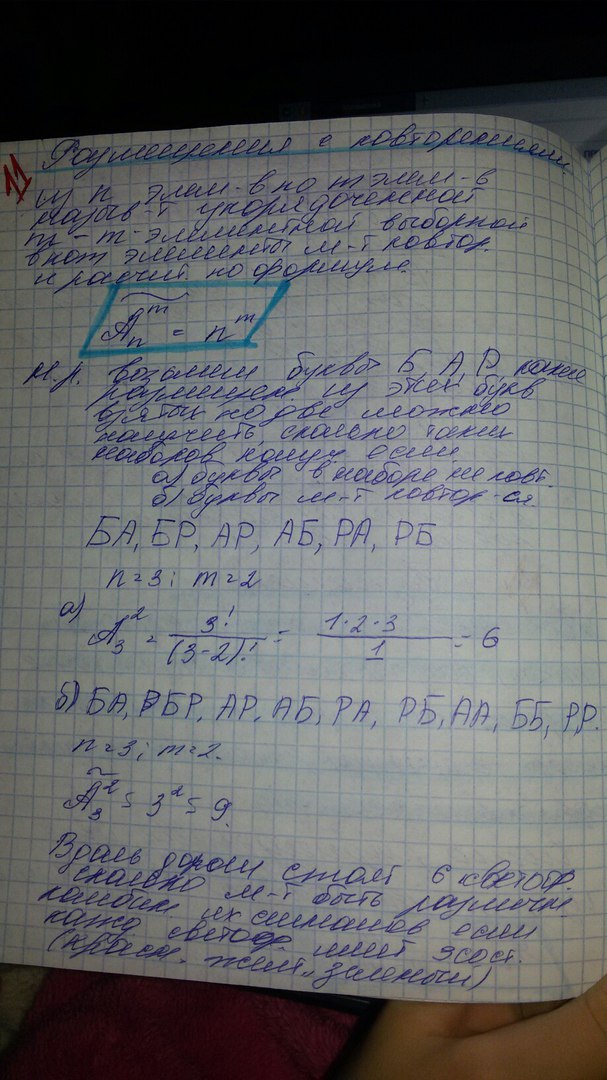 11
Размещения с повторениями
из n элем-в по m элем-в
назыв-т упорядоченной
m - m-элементной выборкой
в кот элементы м-т повтор.
и расчит. по формуле.
Ã_n^m = n^m
Н.р. возьмем буквы Б, А, Р какие
размещен. из этих букв
взятых по две можно
получить, сколько таких
наборов получ если
а) буквы в наборе не повт.
б) буквы м-т повтор-ся.
БА, БР, АР, АБ, РА, РБ
n=3; m=2
а) A_3^2 = 3!/(3-2)! = 1·2·3/1 = 6
б) БА, БР, АР, АБ, РА, РБ, АА, ББ, РР.
n=3; m=2.
Ã_3^2 = 3^2 = 9.
Вдоль дороги стоят 6 светоф.
сколько м-т быть различн
комбин. их сигналов если
кажд светоф. имеет 3 сост.
(красн. желт., зеленый)